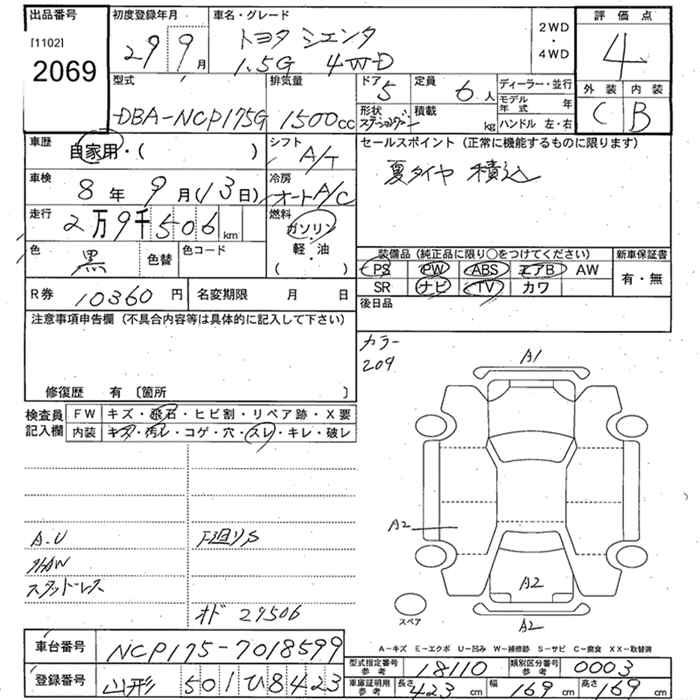 出品番号
[1102]
2069
初度登録年月
29 9月
車名・グレード
トヨタ シエンタ
1.5G 4WD
2WD
・
4WD
評価点
4
外装 内装
C B
型式
DBA-NCP175G
排気量
1500cc
ドア
5
定員
6人
形状
ステーションワゴン
積載
kg
ディーラー・並行
モデル年式 年
ハンドル 左・右
車歴
自家用・( )
シフト
A/T
車検
8年9月(13日)
冷房
オートA/C
走行
2万9千506km
燃料
ガソリン
軽・油
・
( )
色
黒
色替
色コード
R券 10360円
名変期限 月 日
セールスポイント(正常に機能するものに限ります)
夏タイヤ 積込
装備品(純正品に限り○をつけてください)
新車保証書
PS PW ABS エアB AW
SR ナビ TV カワ
有・無
後日品
注意事項申告欄(不具合内容等は具体的に記入して下さい)
修復歴 有〔箇所 〕
検査員
記入欄
FW キズ・飛石・ヒビ割・リペア跡・X要
内装 キズ・汚レ・コゲ・穴・スレ・キレ・破レ
カラー
209
A1
A2
A2
A2
スペア
A.U
下廻りS
スタッドレス
オド 29506
車台番号
NCP175-7018599
登録番号
山形 501 ひ8423
A-キズ E-エクボ U-凹み W-補修跡 S-サビ C-腐食 XX-取替済
型式指定番号
参考
18110
類別区分番号
参考
0003
車庫証明用
参考
長さ
423cm
幅
169cm
高さ
169cm